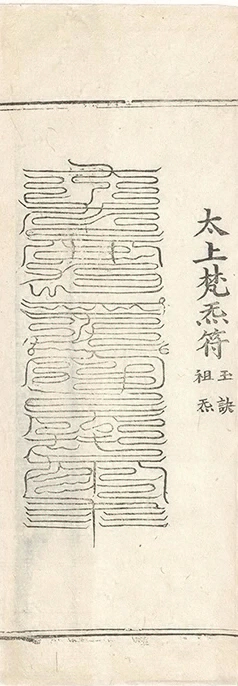 太上梵炁符
玉訣
祖炁